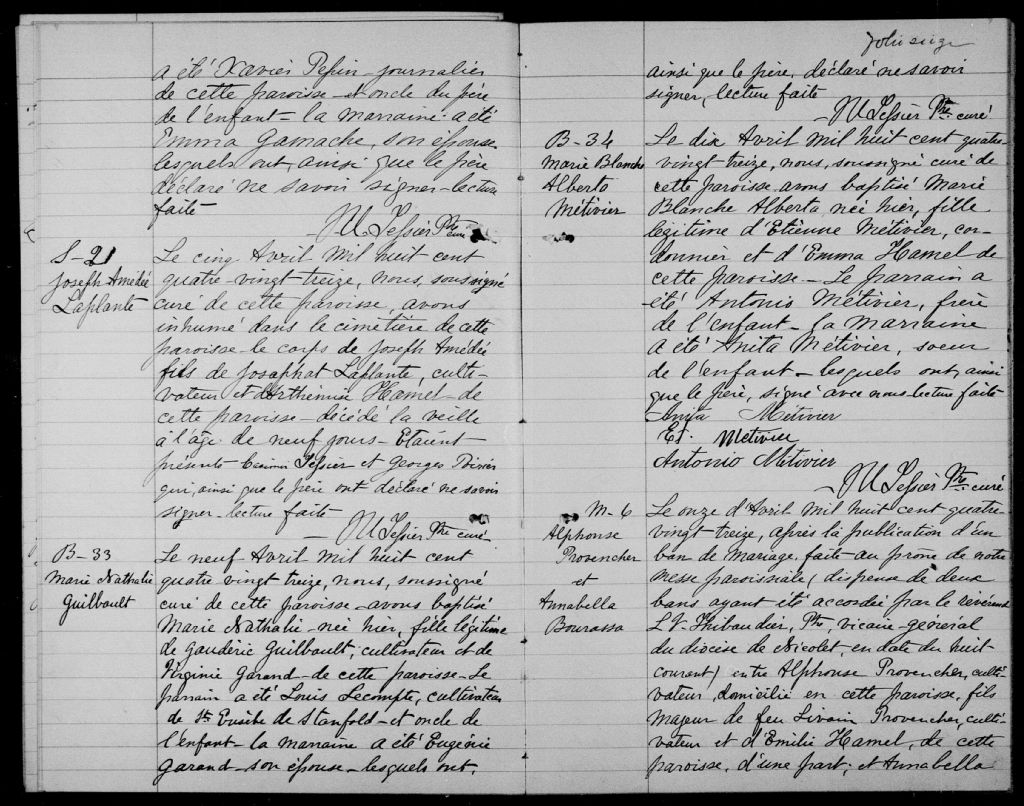 a été Xavier Pepin - journalier
de cette paroisse - et oncle du père
de l'enfant - la marraine a été
Emma Gamache, son épouse
lesquels ont, ainsi que le père
déclaré ne savoir signer - lecture
faite
M Tessier Ptre curé
S-21
Joseph Amédée
Laplante
Le cinq Avril mil huit cent
quatre-vingt treize, nous, soussigné
curé de cette paroisse, avons
inhumé dans le cimetière de cette
paroisse - le corps de Joseph Amédée
fils de Josaphat Laplante, culti-
vateur et d'Arthémise Hamel - de
cette paroisse - décédé la veille
à l'âge de neuf jours - Etaient
présents Tessier et Georges Poirier
qui, ainsi que le père ont déclaré ne savoir
signer - lecture faite
M Tessier Ptre curé
B-33
Marie Nathalie
Guilbault
Le neuf Avril mil huit cent
quatre vingt treize, nous, soussigné
curé de cette paroisse - avons baptisé
Marie Nathalie - née hier, fille légitime
de Gaudéric Guilbault, cultivateur et de
Virginie Garand - de cette paroisse - Le
parrain a été Louis Lecompte, cultivateur
de St Eusèbe de Stanfold - et oncle de
l'enfant - la marraine a été Eugénie
Garand - son épouse - lesquels ont,
folio seize
ainsi que le père, déclaré ne savoir
signer, lecture faite
M Tessier Ptre curé
B-34
Marie Blanche
Alberta
Métivier
Le dix Avril mil huit cent quatre
vingt treize, nous, soussigné curé de
cette paroisse avons baptisé Marie
Blanche Alberta née hier, fille
légitime d'Etienne Métivier, cor-
donnier et d'Emma Hamel de
cette paroisse - Le parrain a
été Antonio Métivier, frère
de l'enfant - la marraine
a été Anita Métivier, soeur
de l'enfant - lesquels ont, ainsi
que le père, signé avec nous - lecture faite
Anita Métivier
Et. Métivier
Antonio Métivier
M Tessier Ptre curé
M-6
Alphonse
Provencher
et
Annabella
Bourassa
Le onze d'Avril mil huit cent quatre-
vingt treize, après la publication d'un
ban de Mariage, faite au prône de notre
messe paroissiale (dispense de deux
bans ayant été accordée par le révérend
Thibaudier, Ptre, vicaire-général
du diocèse de Nicolet, en date du huit
courant) entre Alphonse Provencher, culti-
vateur, domicilié en cette paroisse, fils
majeur de feu Livain Provencher, culti-
vateur et d'Emilie Hamel, de cette
paroisse, d'une part; et Annabella